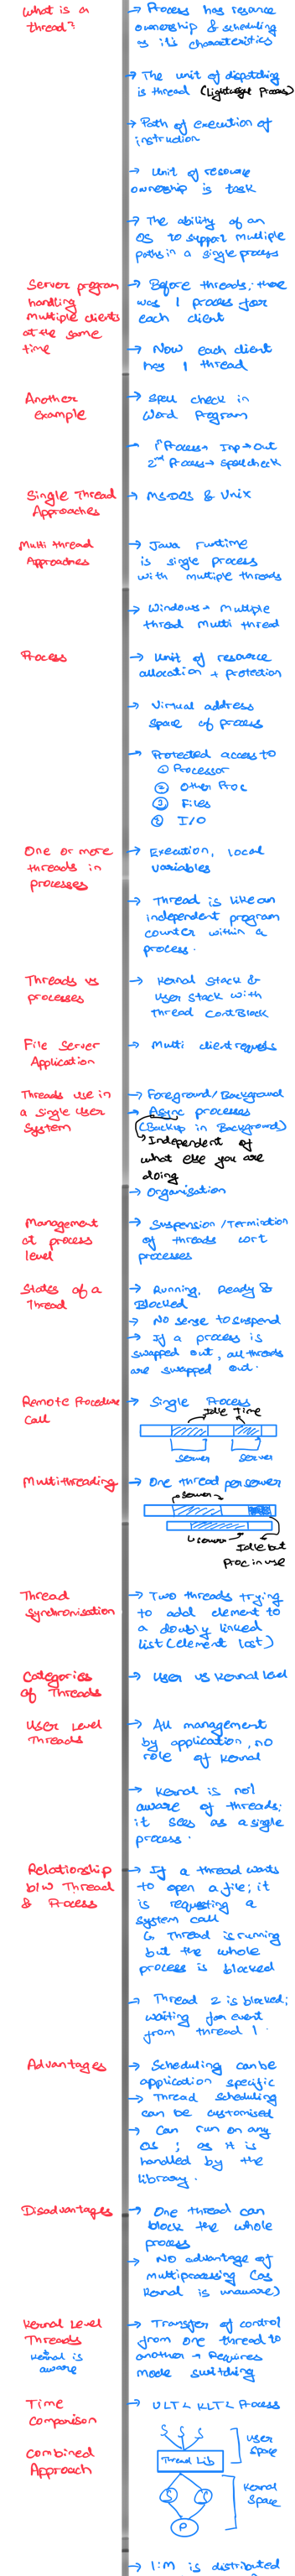 What is a
thread?
→ Process has resource
ownership & scheduling
as it's characteristics
→ The unit of dispatching
is thread (Lightweight Process)
→ Path of execution of
instruction
→ Unit of resource
ownership is task
→ The ability of an
OS to support multiple
paths in a single process
Server program
handling
multiple clients
at the same
time
→ Before threads, there
was 1 process for
each client
→ Now each client
has 1 thread
Another
Example
→ Spell check in
Word Program
→ 1st Process → Inp → Out
2nd Process → Spellcheck
Single Thread
Approaches
→ MS-DOS & Unix
Multi thread
Approaches
→ Java runtime
is single process
with multiple threads
→ Windows → Multiple
thread Multi thread
Process
→ Unit of resource
allocation + protection
→ Virtual address
space of process
→ Protected access to
① Processor
② Other Proc
③ Files
④ I/O
One or more
threads in
processes
→ Execution, local
variables
→ Thread is like an
independent program
counter within a
process.
Threads vs
processes
→ Kernal Stack &
User Stack with
Thread Cont Block
File Server
Application
→ Multi client requests
Threads use in
a Single User
System
→ Foreground/Background
→ Async processes
(Backup in Background)
→ Independent of
what else you are
doing
→ Organisation
Management
at process
level
→ Suspension/Termination
of threads wrt
processes
States of a
Thread
→ Running, Ready &
Blocked
→ No sense to suspend
→ If a process is
swapped out, all threads
are swapped out.
Remote Procedure
Call
→ Single Process
Idle Time
server
server
Multithreading
→ One thread per server
server
server
Idle but
Proc in use
Thread
Synchronisation
→ Two threads trying
to add element to
a doubly linked
list (element lost)
Categories
of Threads
→ User vs Kernal level
User Level
Threads
→ All management
by application, no
role of Kernal
→ Kernal is not
aware of threads;
it sees as a single
process.
Relationship
b/w Thread
& Process
→ If a thread wants
to open a file; it
is requesting a
system call
↳ Thread is running
but the whole
process is blocked
→ Thread 2 is blocked;
waiting for event
from thread 1.
Advantages
→ Scheduling can be
application specific
→ Thread scheduling
can be customised
→ Can run on any
OS ; as it is
handled by the
library.
Disadvantages
→ One thread can
block the whole
process
→ No advantage of
multiprocessing (as
Kernal is unaware)
Kernal Level
Threads
Kernal is
aware
→ Transfer of control
from one thread to
another → Requires
mode switching
Time
Comparison
→ ULT < KLT < Process
Combined
Approach
Thread Lib
User
Space
Kernal
Space
P
→ 1:M is distributed